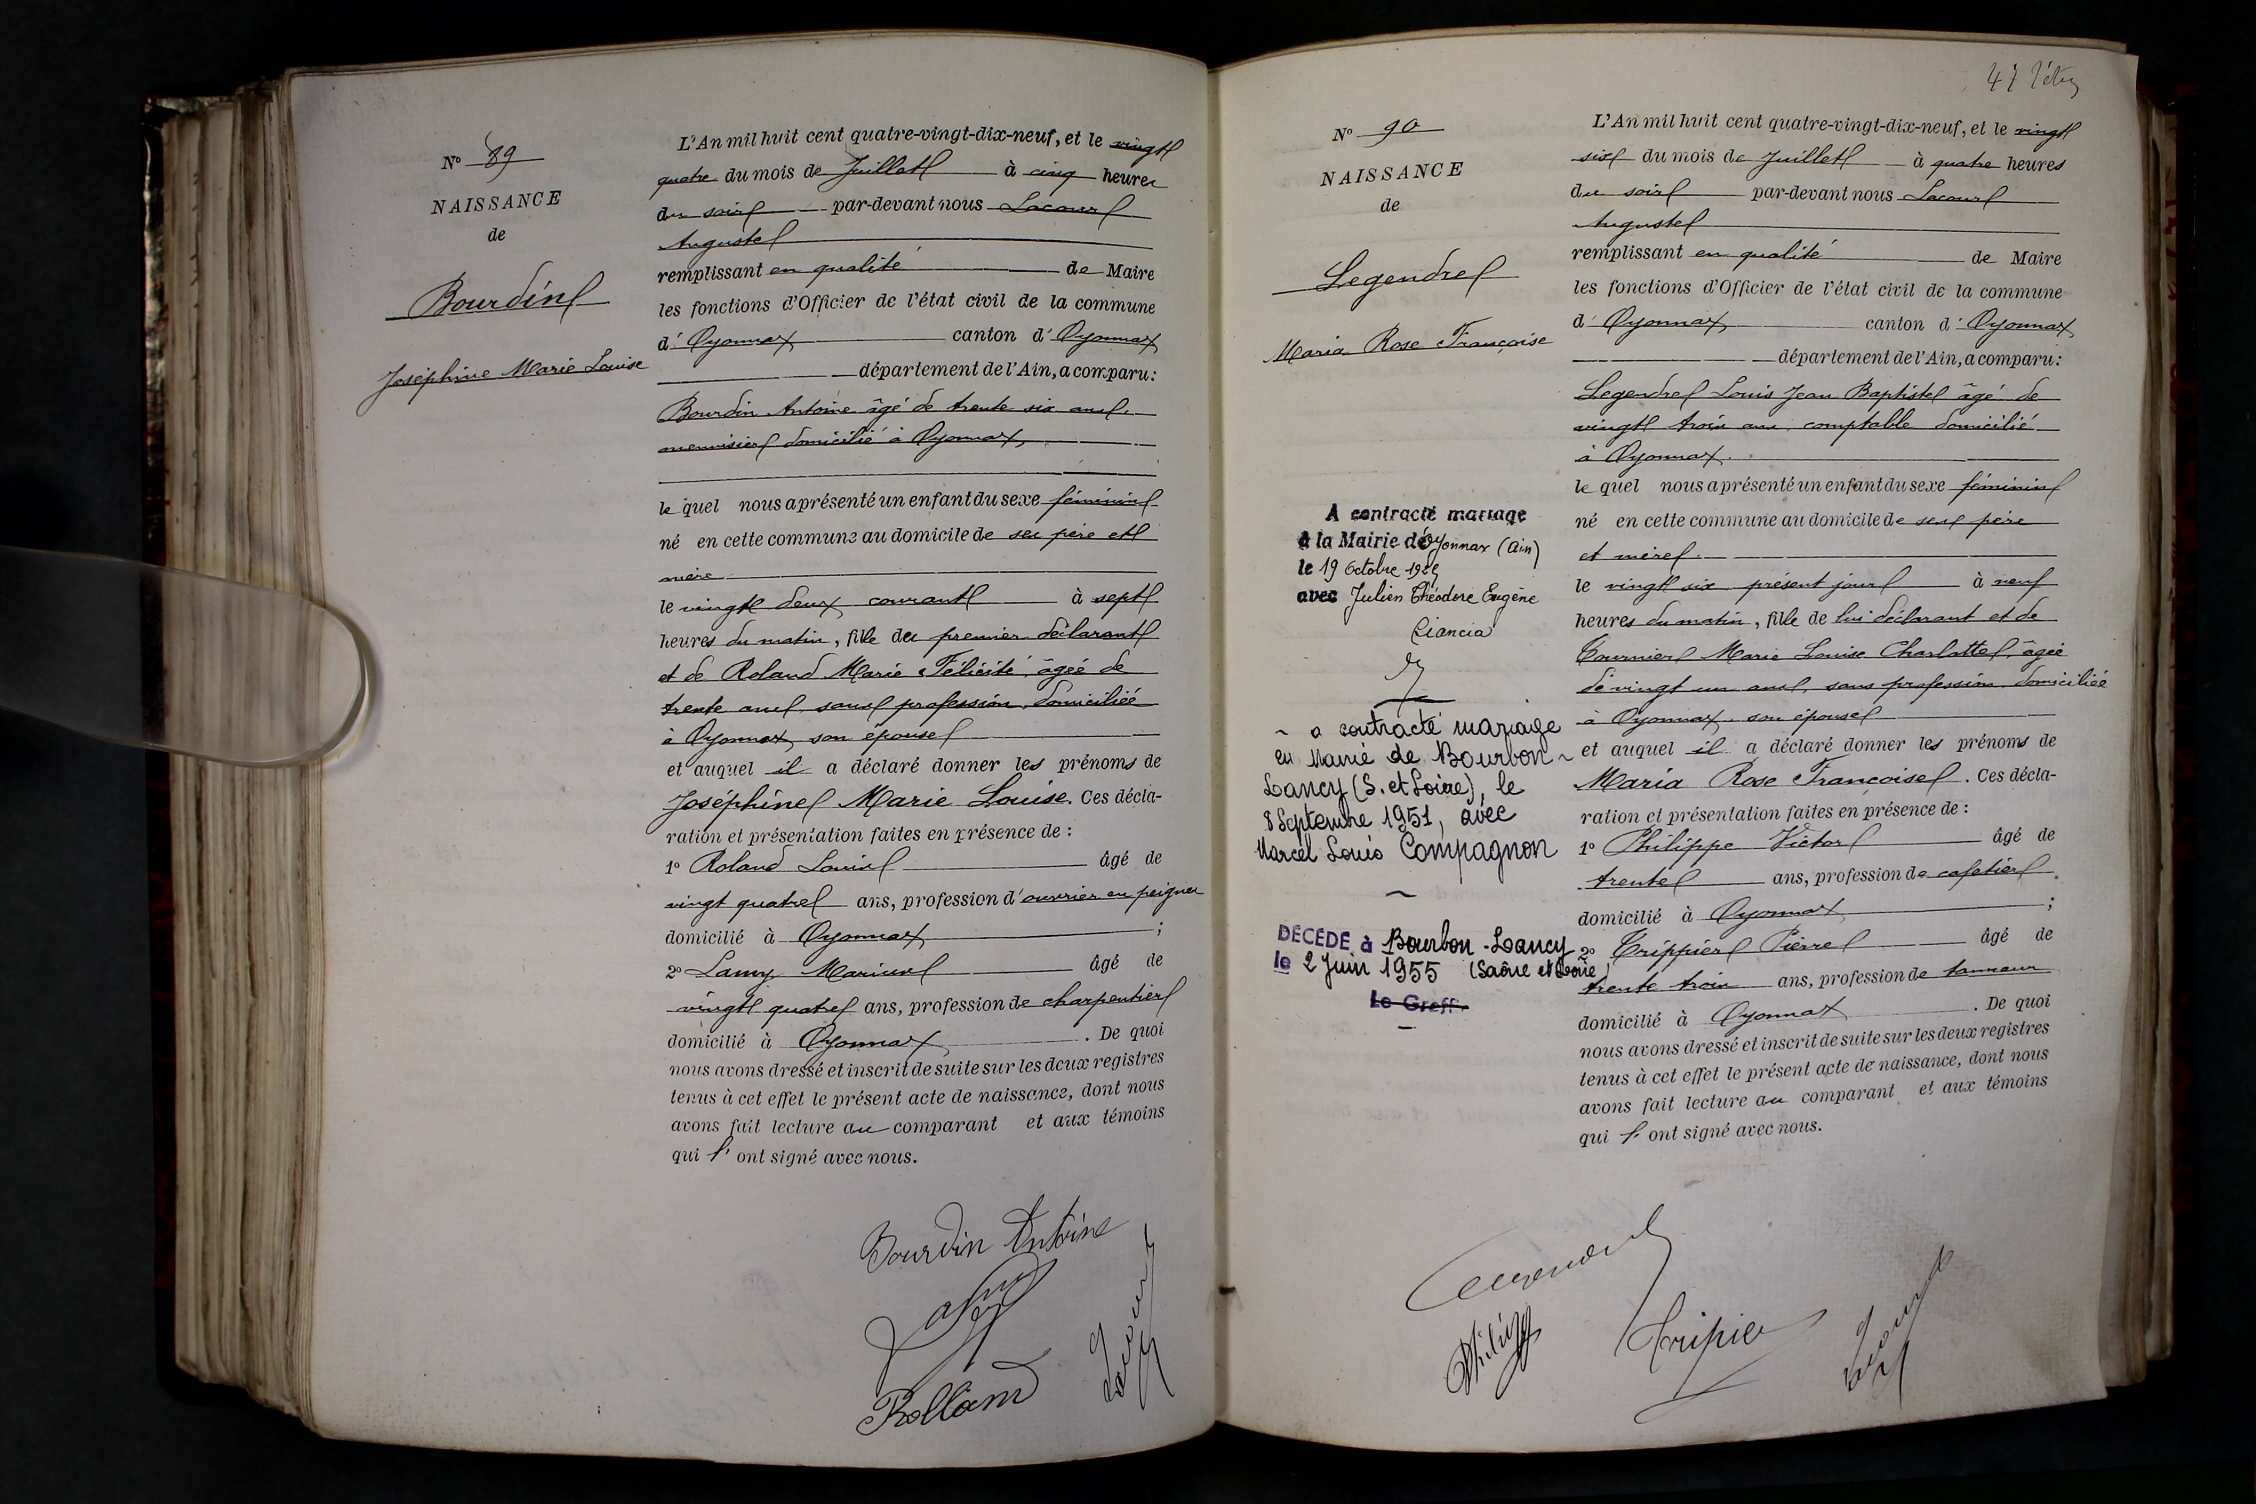 No 89
NAISSANCE
de
Bourdin
Joséphine Marie Louise
L'An mil huit cent quatre-vingt-dix-neuf, et le vingt
quatre du mois de Juillet à cinq heures
du soir par-devant nous Lacour
Auguste
remplissant en qualité de Maire
les fonctions d'Officier de l'état civil de la commune
d'Oyonnax canton d'Oyonnax
département de l'Ain, a comparu:
Bourdin Antoine âgé de trente six ans
menuisier domicilié à Oyonnax
le quel nous a présenté un enfant du sexe féminin
né en cette commune au domicile de ses père et
mère
le vingt deux courant à sept
heures du matin, fille du premier déclarant
et de Roland Marie Félicité, âgée de
trente ans sans profession, domiciliée
à Oyonnax, son épouse
et auquel il a déclaré donner les prénoms de
Joséphine Marie Louise. Ces décla-
ration et présentation faites en présence de :
1o Roland Louis âgé de
vingt quatre ans, profession d'ouvrier en peignes
domicilié à Oyonnax ;
2o Lamy Marius âgé de
vingt quatre ans, profession de charpentier
domicilié à Oyonnax . De quoi
nous avons dressé et inscrit de suite sur les deux registres
tenus à cet effet le présent acte de naissance, dont nous
avons fait lecture au comparant et aux témoins
qui l'ont signé avec nous.
Bourdin Antoine
Lamy
Rolland
Lacour
No 90
NAISSANCE
de
Legendre
Maria Rose Françoise
A contracté mariage
à la Mairie d'Oyonnax (Ain)
le 19 Octobre
avec Julien Théodore Eugène
Ciancia
a contracté mariage
en Mairie de Bourbon-
Lancy (S. et Loire), le
8 Septembre 1951, avec
Marcel Louis Compagnon
DÉCÉDÉ à Bourbon-Lancy
le 2 Juin 1955 (Saône et Loire)
Le Greff.
47
L'An mil huit cent quatre-vingt-dix-neuf, et le vingt
six du mois de Juillet à quatre heures
du soir par-devant nous Lacour
Auguste
remplissant en qualité de Maire
les fonctions d'Officier de l'état civil de la commune
d'Oyonnax canton d'Oyonnax
département de l'Ain, a comparu:
Legendre Louis Jean Baptiste âgé de
vingt trois ans comptable domicilié
à Oyonnax
le quel nous a présenté un enfant du sexe féminin
né en cette commune au domicile de ses père
et mère
le vingt six présent jour à neuf
heures du matin, fille de lui déclarant et de
Tournier Marie Louise Charlotte, âgée
de vingt un ans, sans profession domiciliée
à Oyonnax, son épouse
et auquel il a déclaré donner les prénoms de
Maria Rose Françoise. Ces décla-
ration et présentation faites en présence de :
1o Philippe Victor âgé de
trente ans, profession de cafetier
domicilié à Oyonnax ;
2o Trippier Pierre âgé de
trente trois ans, profession de tanneur
domicilié à Oyonnax . De quoi
nous avons dressé et inscrit de suite sur les deux registres
tenus à cet effet le présent acte de naissance, dont nous
avons fait lecture au comparant et aux témoins
qui l'ont signé avec nous.
Legendre
Philippe
Tripier
Lacour